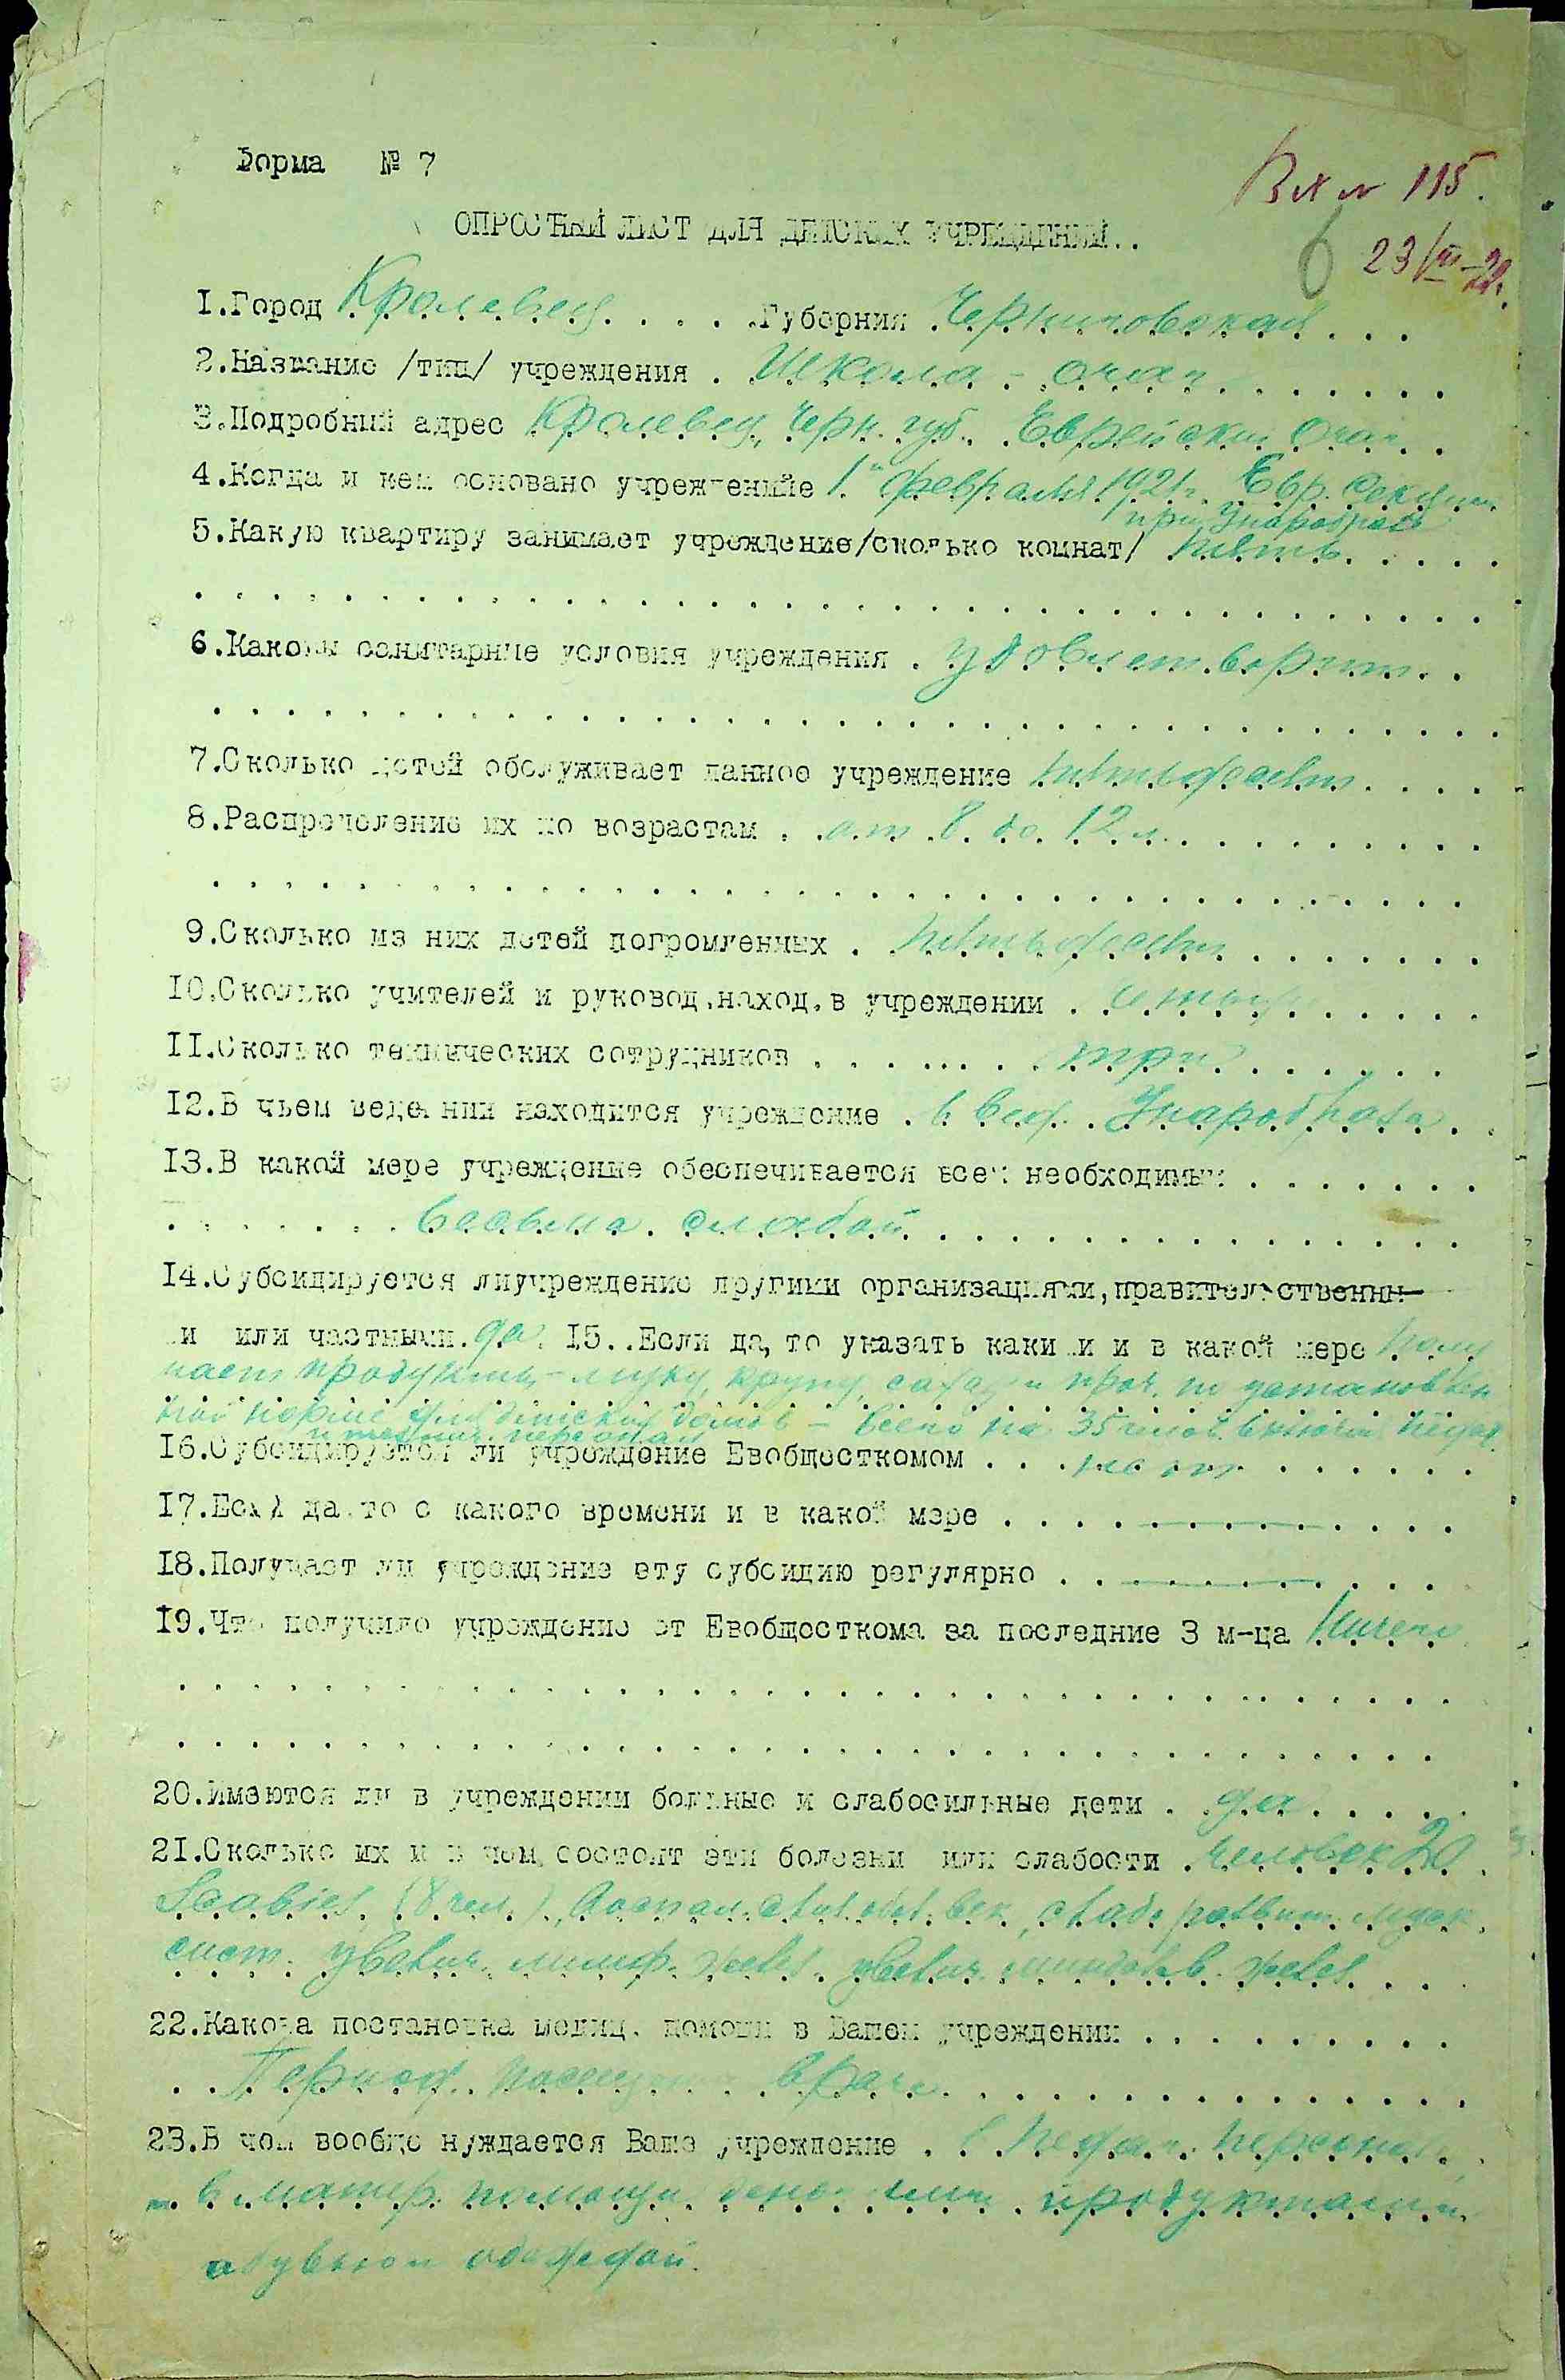 Форма № 7
Вх № 115.
ОПРОСНЫЙ ЛИСТ ДЛЯ ДЕТСКИХ УЧРЕЖДЕНИЙ..
6 23/III-22.
I.Город Кролевец. . . . .Губерния .Черниговская. . .
2.Название /тип/ учреждения . Школа - очаг . . . . . .
3.Подробный адрес Кролевец, Черн. губ. Еврейский Очаг. .
4.Когда и кем основано учреждение 1го февраля 1921г. Евр. Секцией
при Унаробразе
5.Какую квартиру занимает учреждение/сколько комнат/ пять. . . . .
6.Каковы санитарные условия учреждения . удовлетворит. .
7.Сколько детей обслуживает данное учреждение пятьдесят. . . .
8.Распределение их по возрастам . .от 8 до 12 л. . . . . . . . .
9.Сколько из них детей погромленных . пятьдесят . . . . . . .
I0.Сколько учителей и руковод.наход.в учреждении . . . . . .
II.Сколько технических сотрудников . . . . . . . три . . . . . .
I2.В чьем ведении находится учреждение . в вед. Унаробраза . .
I3.В какой мере учреждение обеспечивается всем необходимым . . . . . . .
. . . . . . . весьма слабой. . . . . . . . . . . . . . .
I4.Субсидируется лиучреждение другими организациями,правительственны-
и или частными.да. I5. .Если да,то указать каки и и в какой мере Полу
чает продукты - муку, крупу, сахар и проч. по установлен
ной норме для детских домов - всего на 35 челов. включая педаг.
и технич. персонал
I6.Субсидируется ли учреждение Евобщесткомом . . . нет . . . . . .
I7.Если да.то с какого времени и в какой мере . . . . . . . . . . . .
I8.Получает ли учреждение эту субсидию регулярно . . . . . . . . . .
I9.Что получило учреждение от Евобщесткома за последние 3 м-ца Ничего
20.Имеются ли в учреждении больные и слабосильные дети . да . . . .
2I.Сколько их и в чем состоят эти болезни или слабости .человек 20 .
Scabies (8 чел.), воспал. слиз. обол. век, слабо развит. муск.
сист. увелич. лимф. желез. увелич. миндалев. желез. . .
22.Какова постановка медиц. помощи в Вашем учреждении . . . . . . . . .
. . Период. посещен. врача. . . . . . . . . . . . . .
23.В чем вообще нуждается Ваше учреждение . в педаг. персонале,
в матер. помощи продуктами
обувью и одеждой.